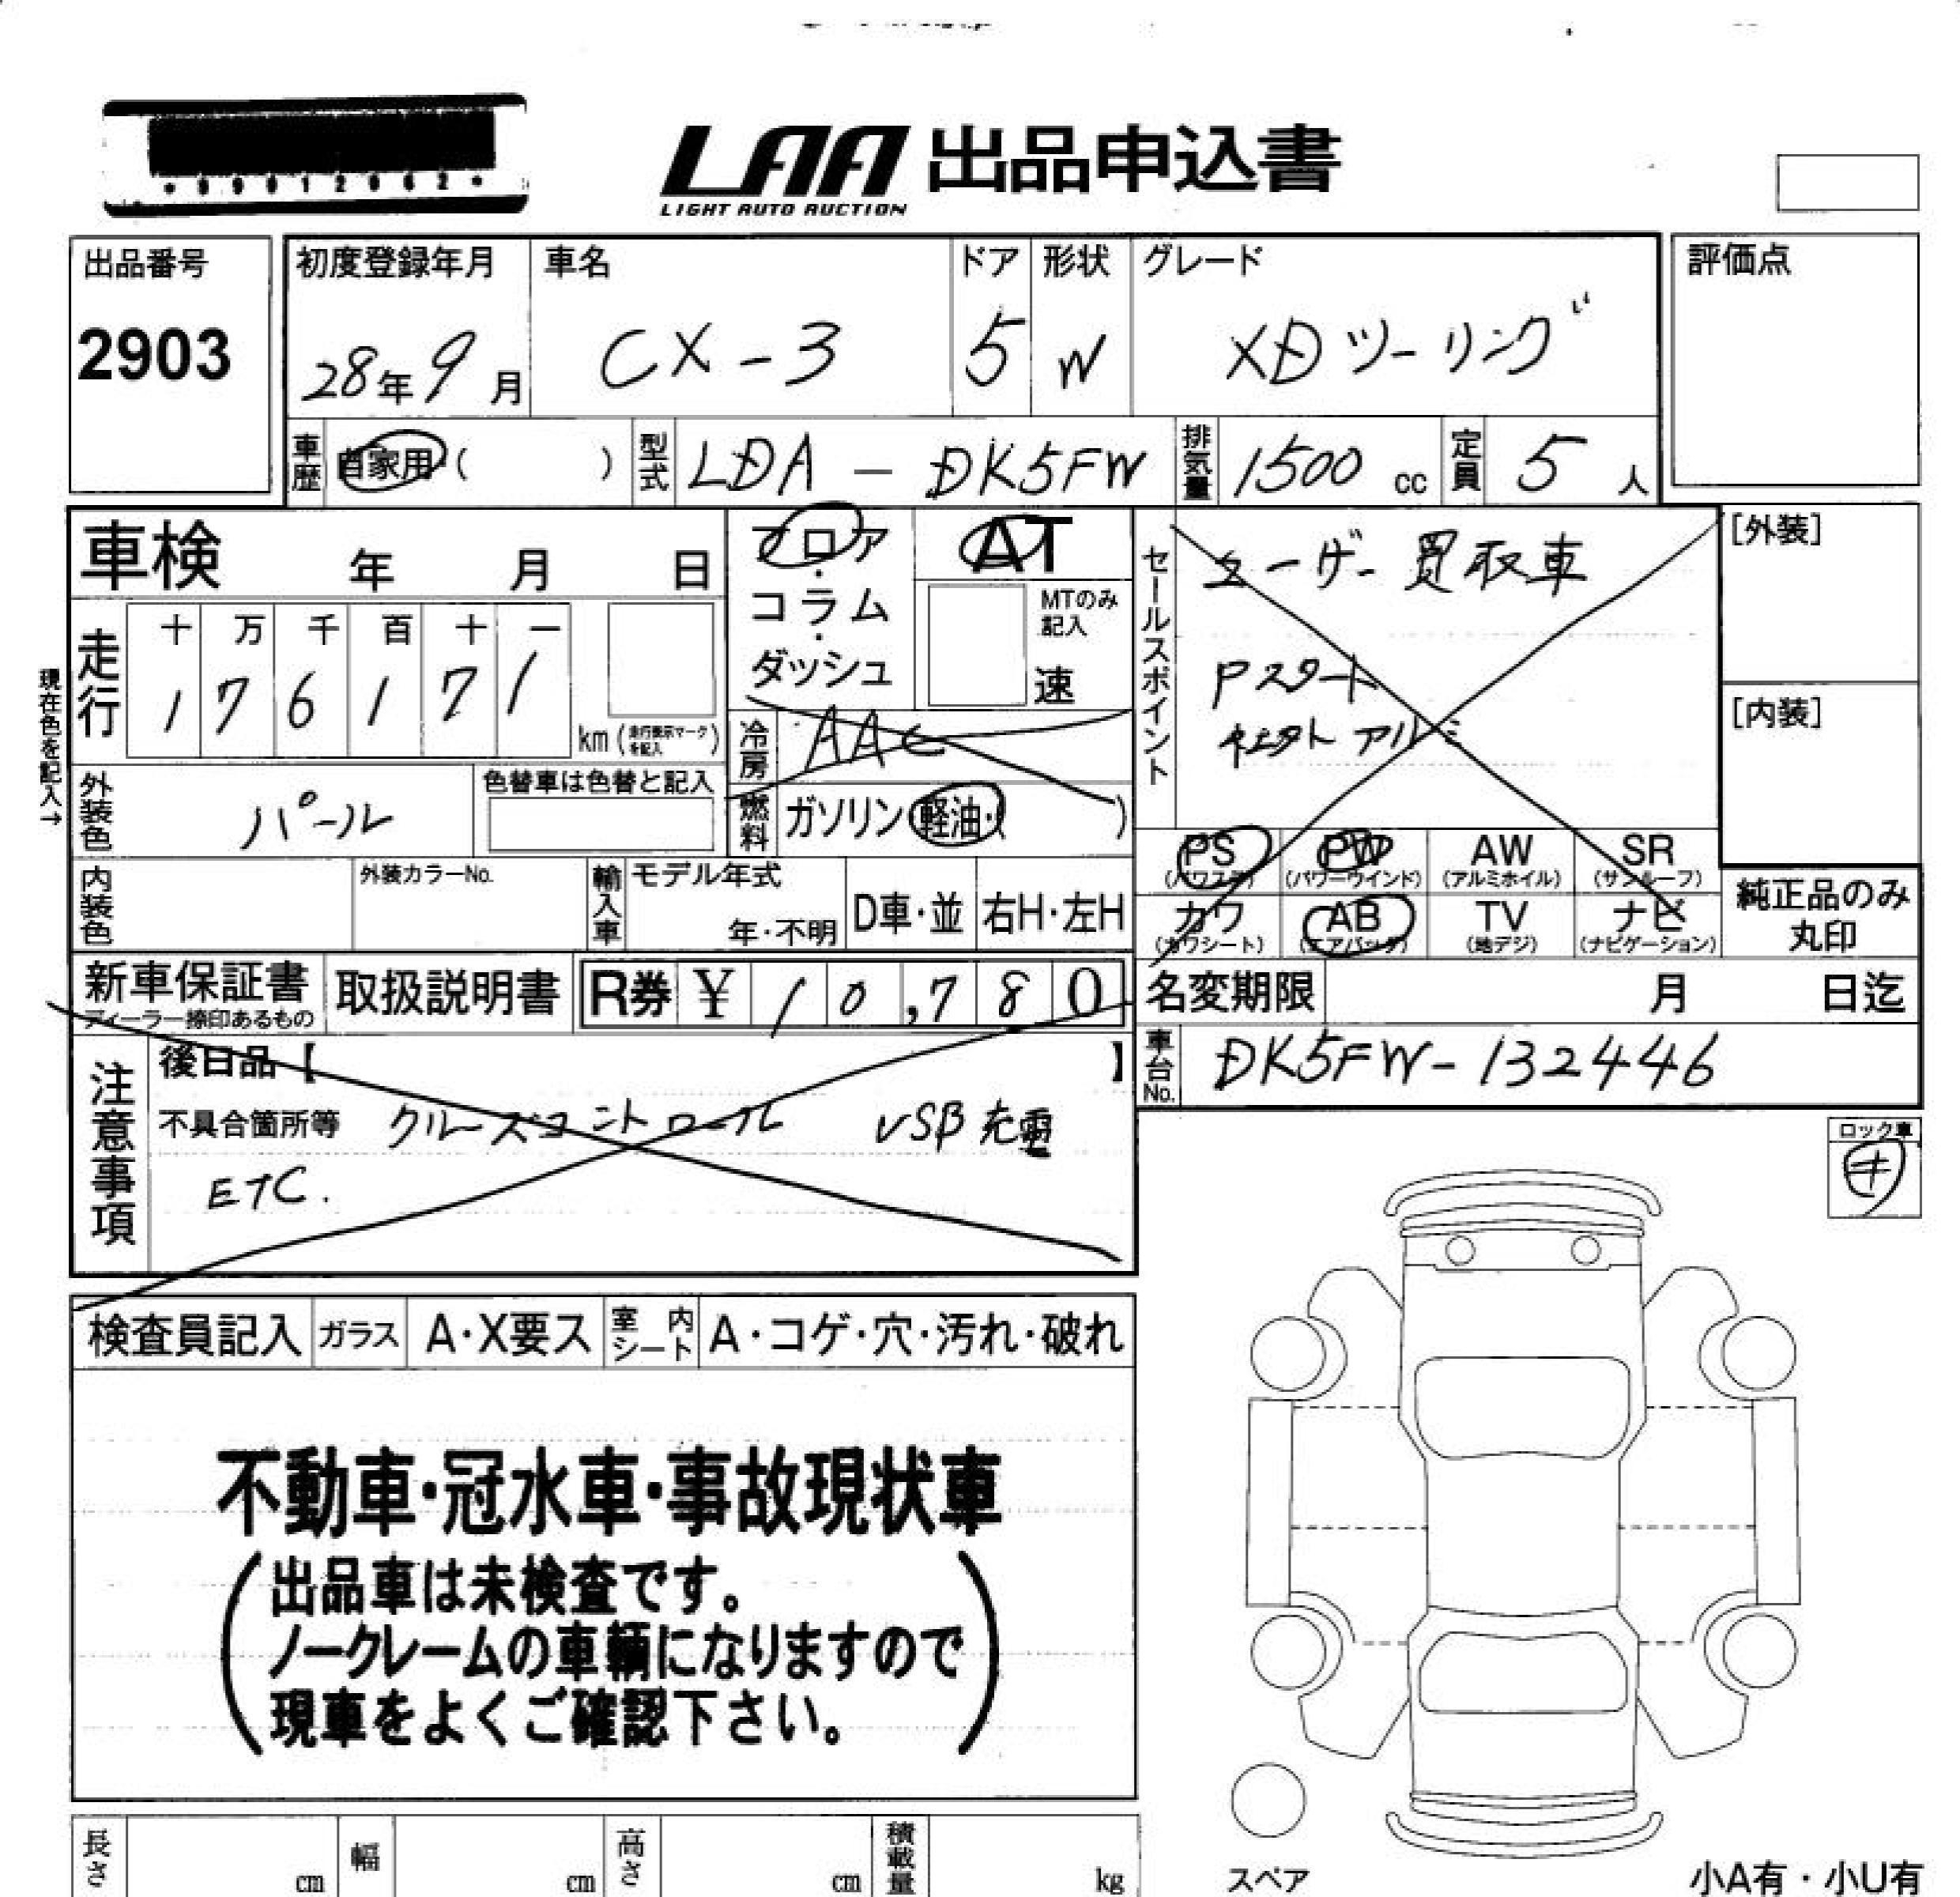 *99012062*
LAA 出品申込書
LIGHT AUTO AUCTION
出品番号
2903
初度登録年月
28年9月
車名
CX-3
ドア
5
形状
W
グレード
XDツーリング
評価点
車歴
自家用・( )
型式
LDA-DK5FW
排気量
1500 cc
定員
5人
車検 年 月 日
フロア・コラム・ダッシュ
AT
MTのみ記入
速
セールスポイント
ユーザー買取車
Pスタート
社外アルミ
[外装]
[内装]
現在色を記入→
走行
十 万 千 百 十 一
1 7 6 1 7 1
km (走行表示マークを記入)
冷房
AAC
外装色
パール
色替車は色替と記入
燃料
ガソリン・軽油・( )
PS
(パワステ)
PW
(パワーウインド)
AW
(アルミホイル)
SR
(サンルーフ)
カワ
(カワシート)
AB
(エアバッグ)
TV
(地デジ)
ナビ
(ナビゲーション)
純正品のみ
丸印
内装色
外装カラーNo.
輸入車
モデル年式
年・不明
D車・並
右H・左H
新車保証書
ディーラー捺印あるもの
取扱説明書
R券 ¥ 10,780
名変期限 月 日迄
車台No.
DK5FW-132446
注意事項
後日品【 】
不具合箇所等 クルーズコントロール USB充電
ETC.
ロック車
キ
検査員記入
ガラス
A・X要ス
室内シート
A・コゲ・穴・汚れ・破れ
不動車・冠水車・事故現状車
(出品車は未検査です。
ノークレームの車輌になりますので
現車をよくご確認下さい。)
長さ cm
幅 cm
高さ cm
積載量 kg
スペア
小A有・小U有